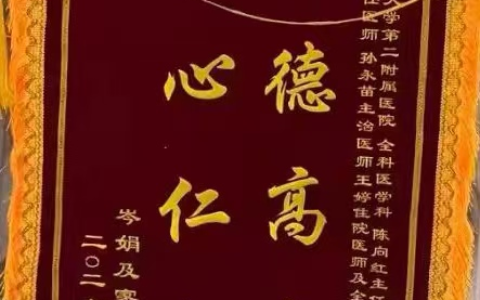 大学第二附属医院 全科医学科 陈向红主
任医师 孙永苗主治医师王婷住院医师及全
德高
心仁
岑娟及家
二〇二